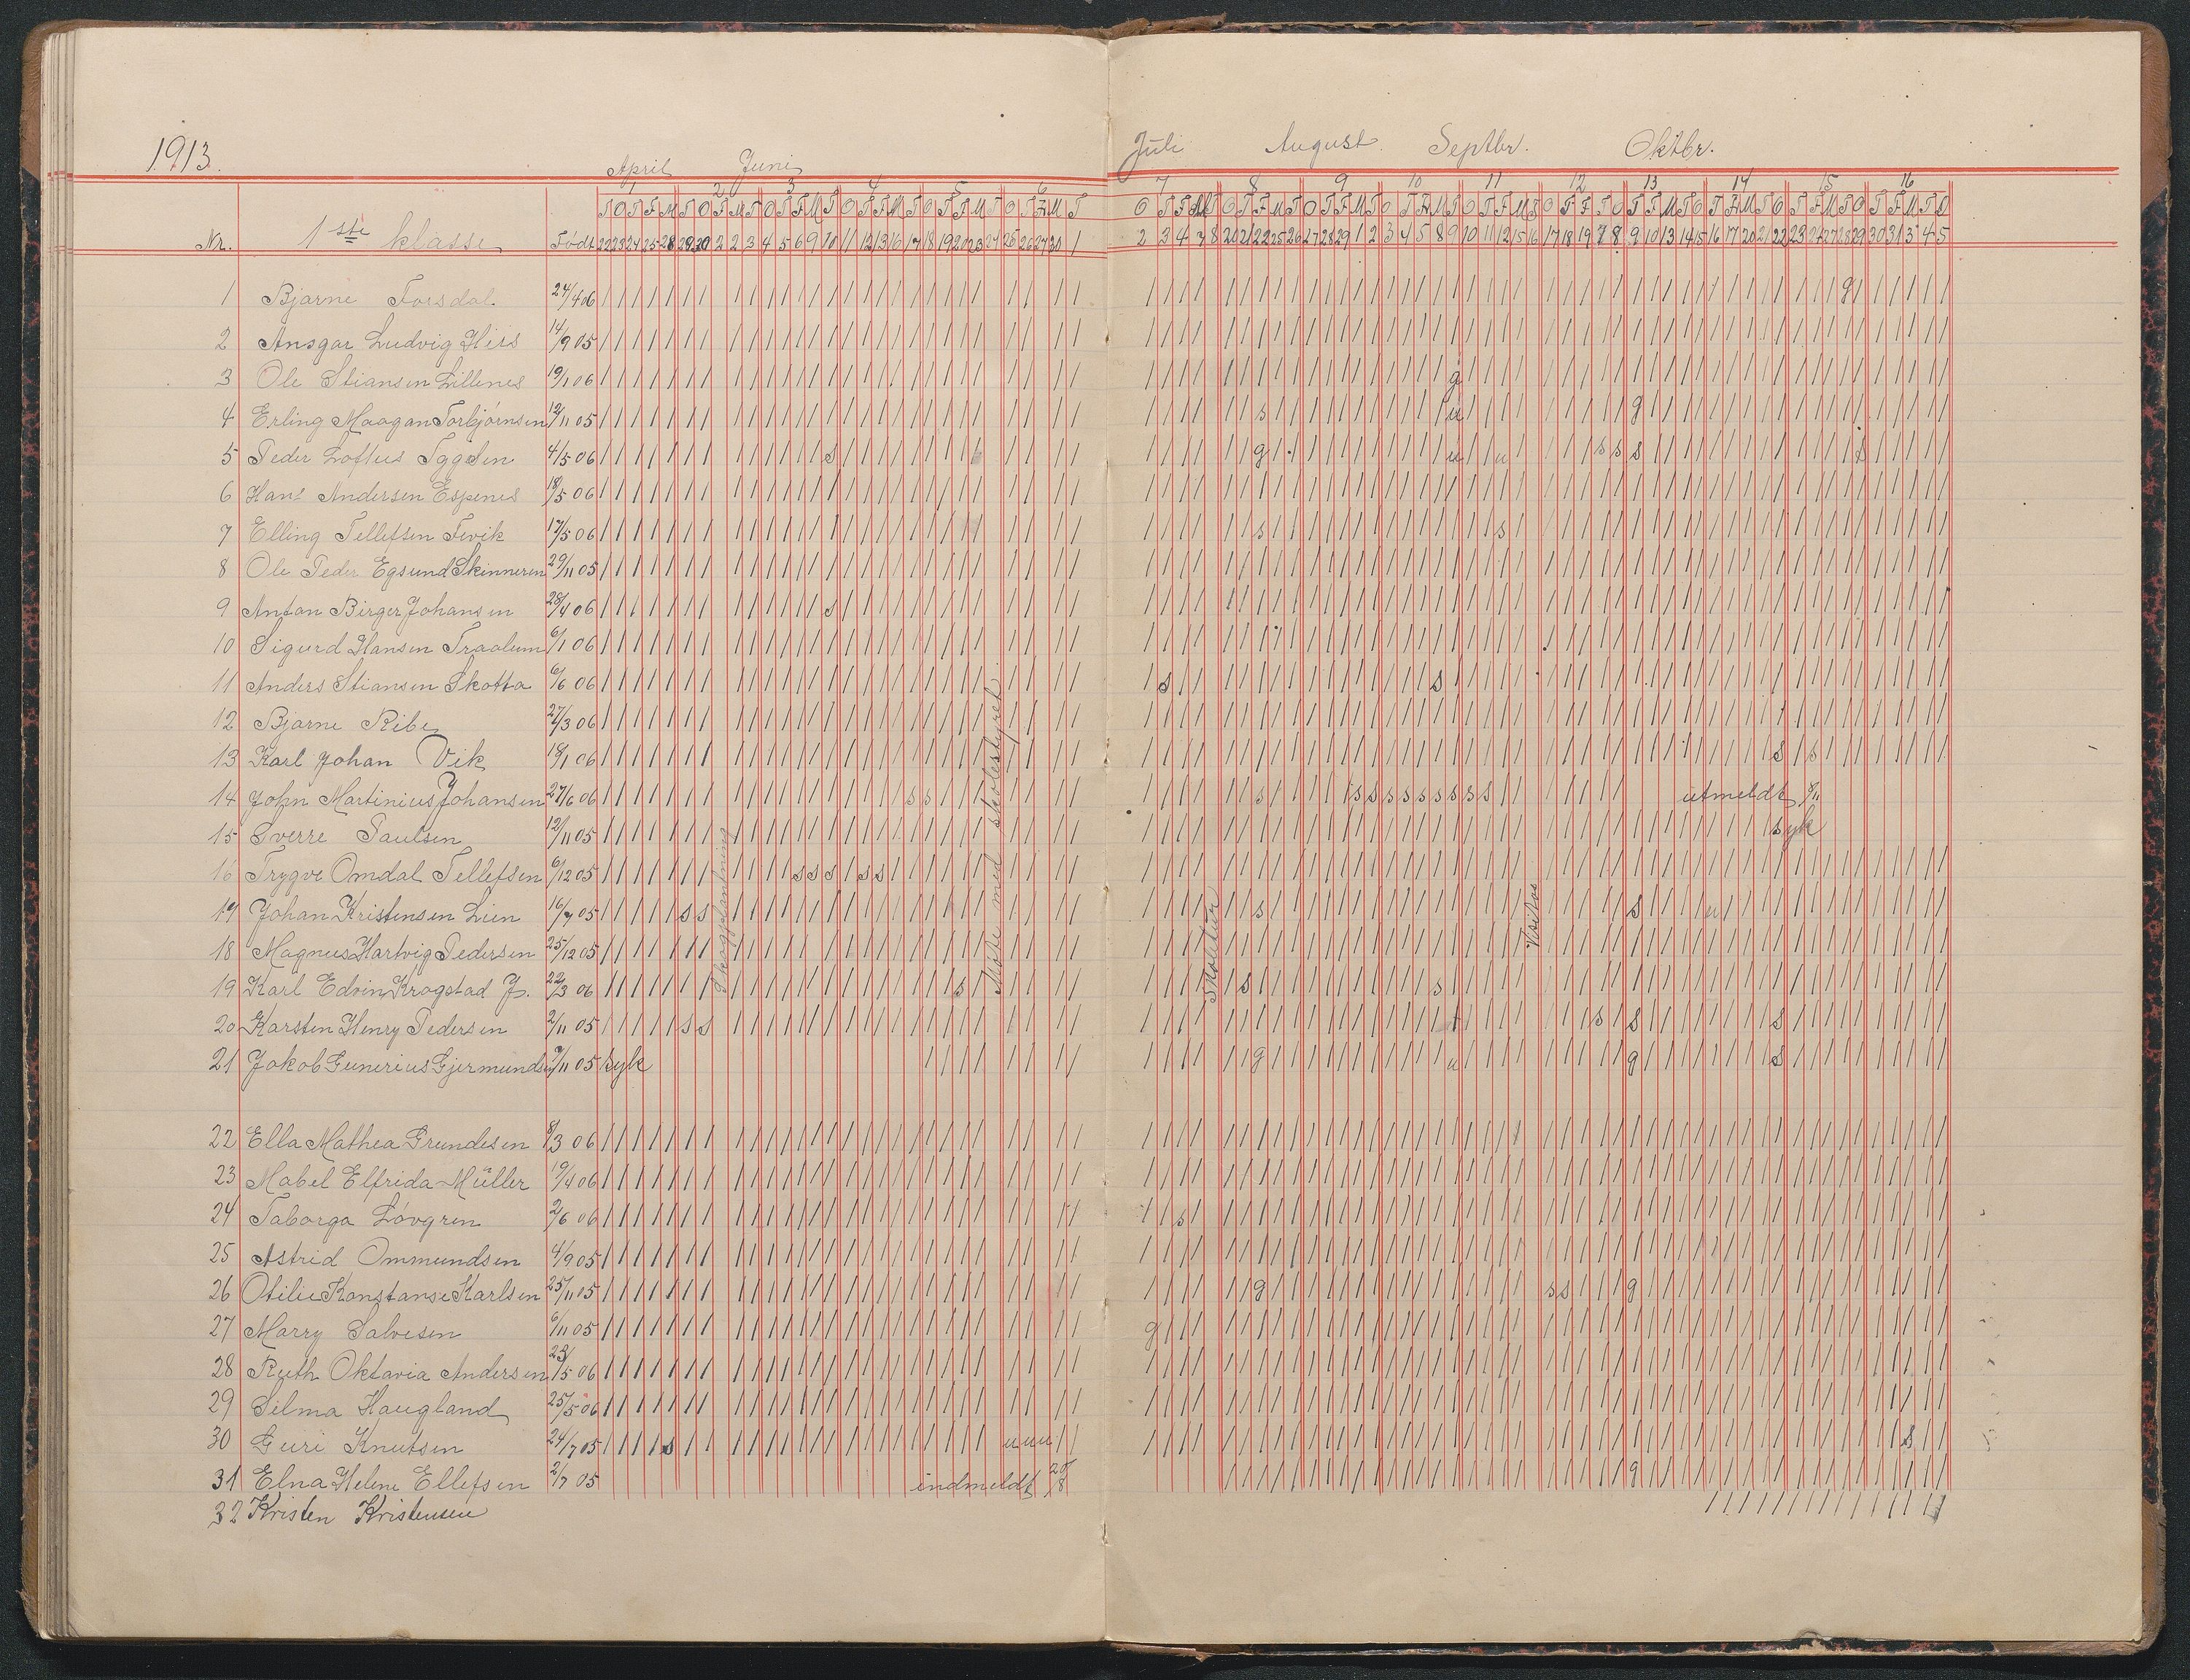 1913.
April Juni
Juli August. Septbr. Oktbr.
1 2 3 4 5 6
7 8 9 10 11 12 13 14 15 16
Nr. 1ste klasse Født
1 Bjarne Forsdal. 24/4 06
2 Ansgar Ludvig Hiis 14/9 05
3 Ole Stiansen Lillenes 19/1 06
g
4 Erling Maagan Torbjørnsen 12/11 05
s u g
5 Peder Loftus 4/5 06
s g u u s s s s
6 Hans Andersen Espenes 18/5 06
7 Elling Tellefsen Fevik 17/5 06
s s
8 Ole Peder Egsund Skinneren 29/11 05
9 Anton Birger Johansen 28/4 06
s
10 Sigurd Hansen Traalum 6/1 06
11 Anders Stiansen Skotta 6/6 06
s s
12 Bjarne Ribe 27/3 06
13 Karl Johan Vik 18/1 06
s s
14 John Martinius Johansen 27/6 06
s s s s s s s s s s s s utmeldt 8/11
15 Sverre Paulsen 12/11 05
syk
16 Trygve Omdal Tellefsen 6/12 05
s s s s s
17 Johan Kristensen Lien 16/7 05
s s s s u
18 Magnus Hartvig Pedersen 25/12 05
19 Karl Edvin Krogstad J. 22/3 06
s s s
20 Karsten Henry Pedersen 2/11 05
s s s s s
21 Jakob Gunerius Gjermundsen 7/11 05 syk
g u g s
Skogplantning
Møte med skolestyret
Skoletur
Visitas
22 Ella Mathea Grundesen 8/3 06
23 Mabel Elfrida Müller 19/4 06
24 Taborga Løvgren 2/6 06
s
25 Astrid Ommundsen 4/9 05
26 Otilie Konstanse Karlsen 25/11 05
g s s g
27 Marry Salvesen 6/11 05
g
28 Ruth Oktavia Andersen 23/5 06
29 Selma Haugland 25/5 06
30 Guri Knutsen 24/7 05
s u u u s
31 Elna Helene Ellefsen 2/7 05 indmeldt 20/8
g
32 Kristen Kristensen